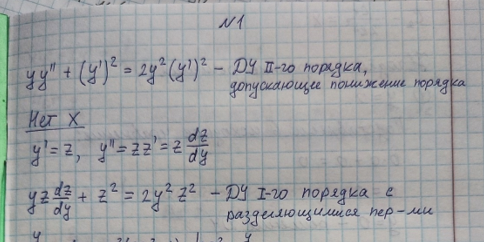 №1
yy" + (y')² = 2y²(y')² - ДУ II-го порядка,
допускающее понижение порядка
Нет X
y' = z, y" = zz' = z dz/dy
yz dz/dy + z² = 2y²z² - ДУ I-го порядка с
разделяющимися пер-ми